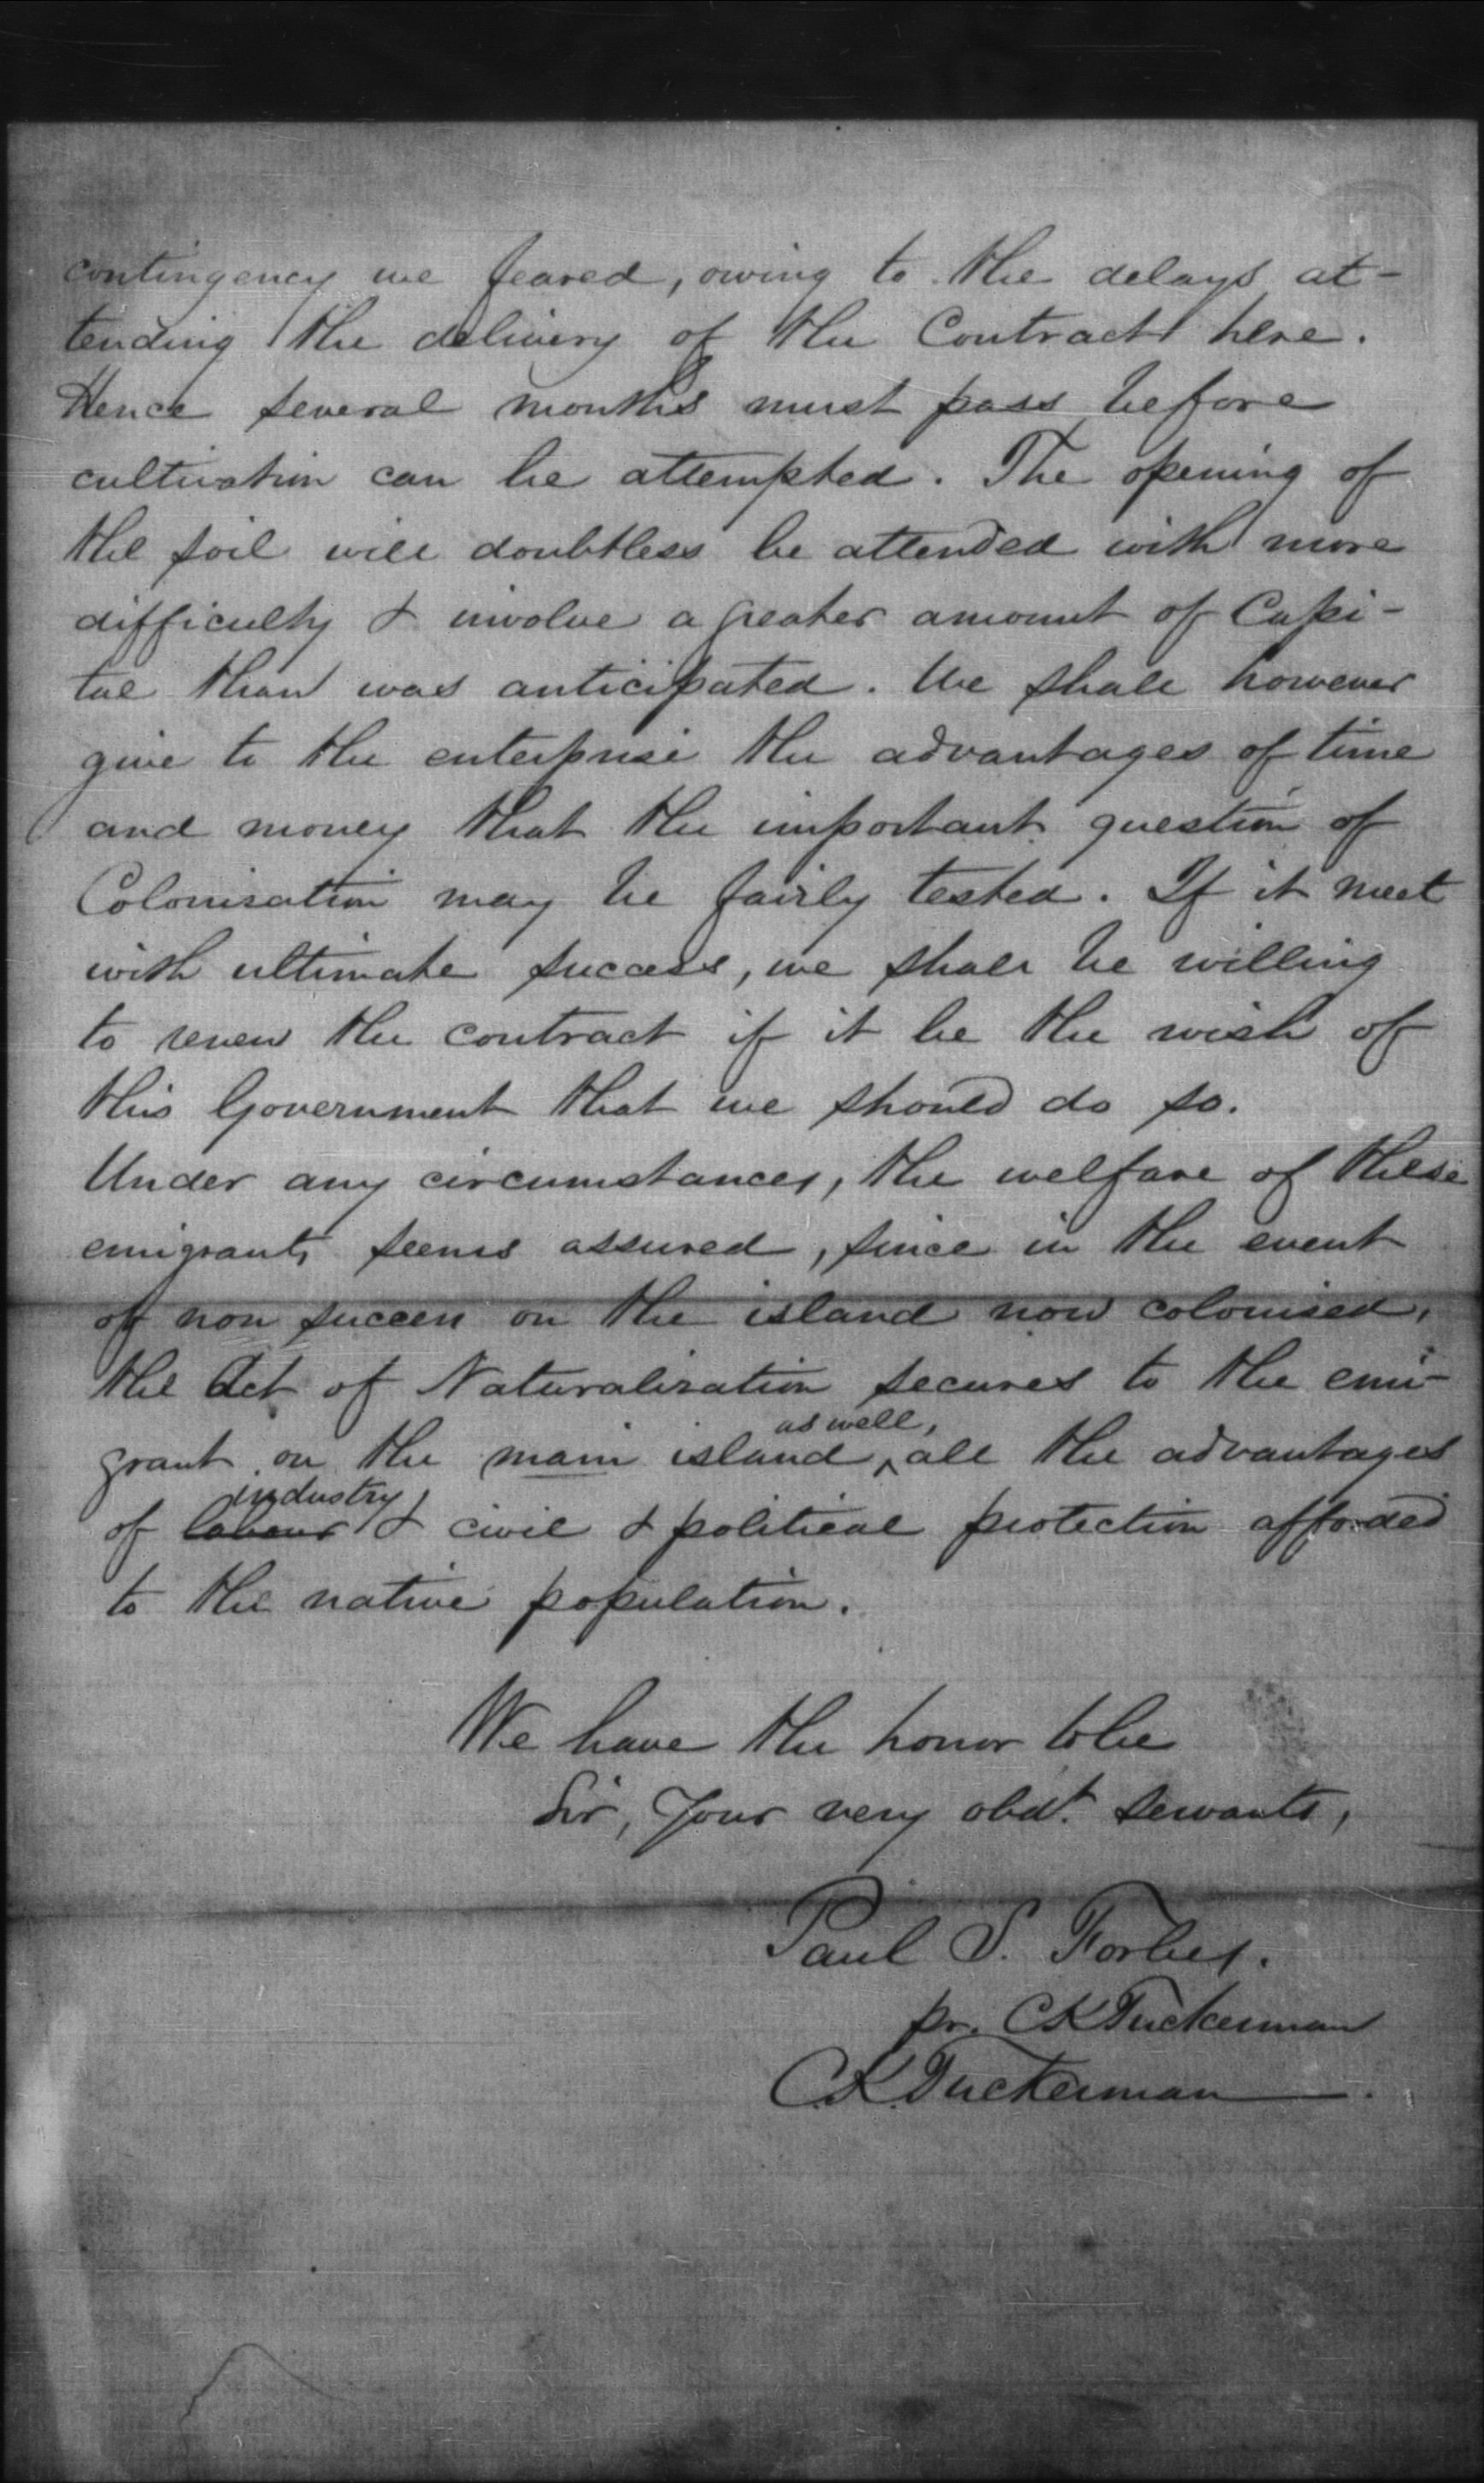 contingency we feared, owing to the delays at-
tending the delivery of the Contract here.
Hence several months must pass before
cultivation can be attempted. The opening of
the soil will doubtless be attended with more
difficulty & involve a greater amount of Capi-
tal than was anticipated. We shall however
give to the enterprise the advantages of time
and money that the important question of
Colonisation may be fairly tested. If it meet
with ultimate success, we shall be willing
to renew the contract if it be the wish of
this Government that we should do so.
Under any circumstances, the welfare of these
emigrants seems assured, since in the event
of non success on the island now colonised,
the Act of Naturalization secures to the emi-
as well,
grant on the main island, all the advantages
industry
of labour & civil & political protection afforded
to the native population.
We have the honor to be
Sir, Your very obdt. servants,
Paul S. Forbes.
pr. CK Tuckerman
C.K. Tuckerman